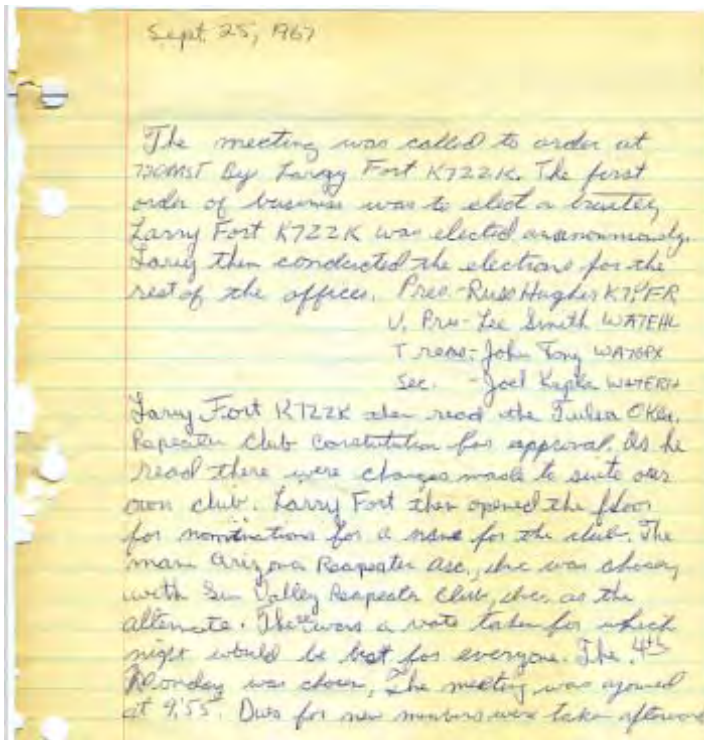 Sept. 25, 1967
The meeting was called to order at
730MST By Larry Fort K7ZZK. The first
order of business was to elect a
Larry Fort K7ZZK was elected
Larry then conducted the elections for the
rest of the offices. Pres.-Russ Hughes
V. Pres-Lee Smith WA7EHL
Treas.-John WA7GPX
Sec. -Joel WA7ERH
Larry Fort K7ZZK then read the Tulsa Okla.
Repeater Club Constitution for approval. As he
read there were changes made to suite our
own club. Larry Fort then opened the floor
for nominations for a name for the club. The
name Arizona Reapeater Asc., Inc was chosen,
with Sun Valley Reapeater Club, Inc. as the
alternate. There was a vote taken for which
night would be best for everyone. The 4th
Monday was chosen, The meeting was ajouned
at 9:55. Dues for new members were taken afterward